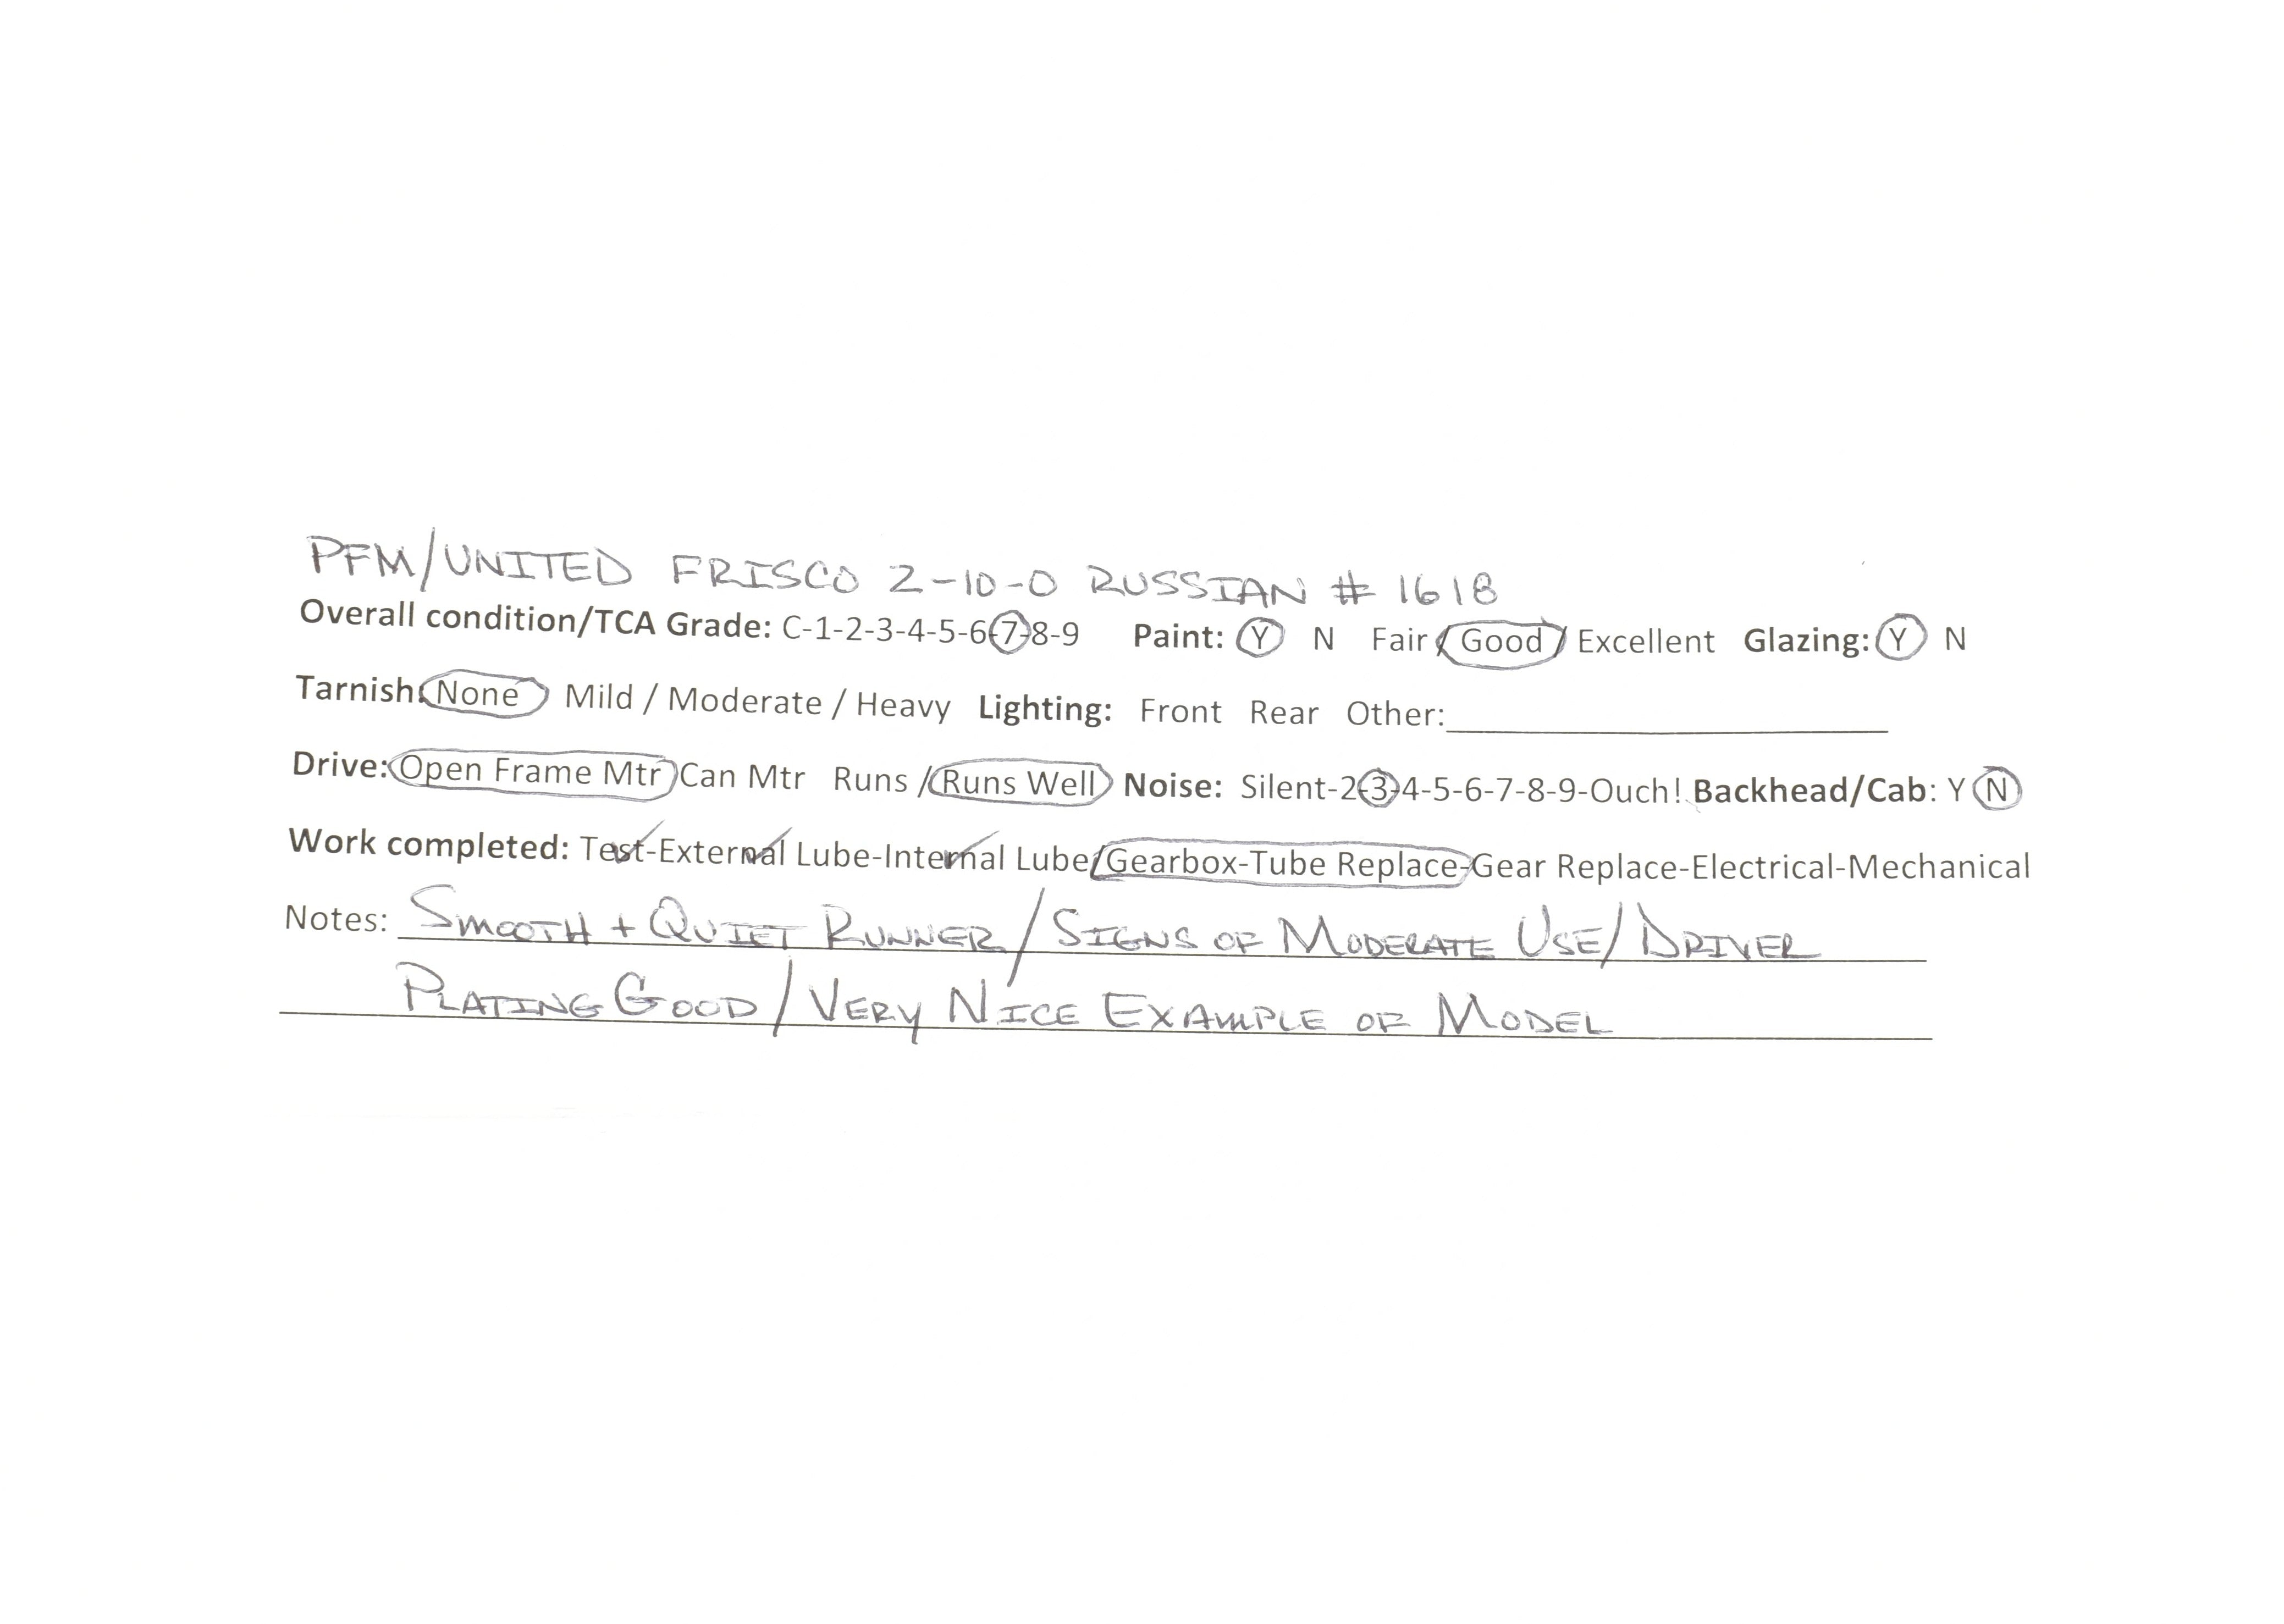 PFM/UNITED FRISCO 2-10-0 RUSSIAN # 1618
Overall condition/TCA Grade: C-1-2-3-4-5-6-7-8-9 Paint: Y N Fair / Good / Excellent Glazing: Y N
Tarnish: None Mild / Moderate / Heavy Lighting: Front Rear Other:
Drive: Open Frame Mtr Can Mtr Runs / Runs Well Noise: Silent-2-3-4-5-6-7-8-9-Ouch! Backhead/Cab: Y N
Work completed: Test-External Lube-Internal Lube/Gearbox-Tube Replace-Gear Replace-Electrical-Mechanical
Notes: SMOOTH + QUIET RUNNER/SIGNS OF MODERATE USE/DRIVER
PLATING GOOD/VERY NICE EXAMPLE OF MODEL